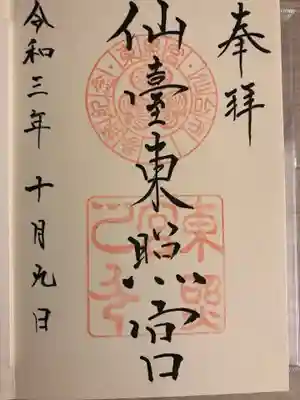 奉拝
仙臺東照宮
令和三年十月九日